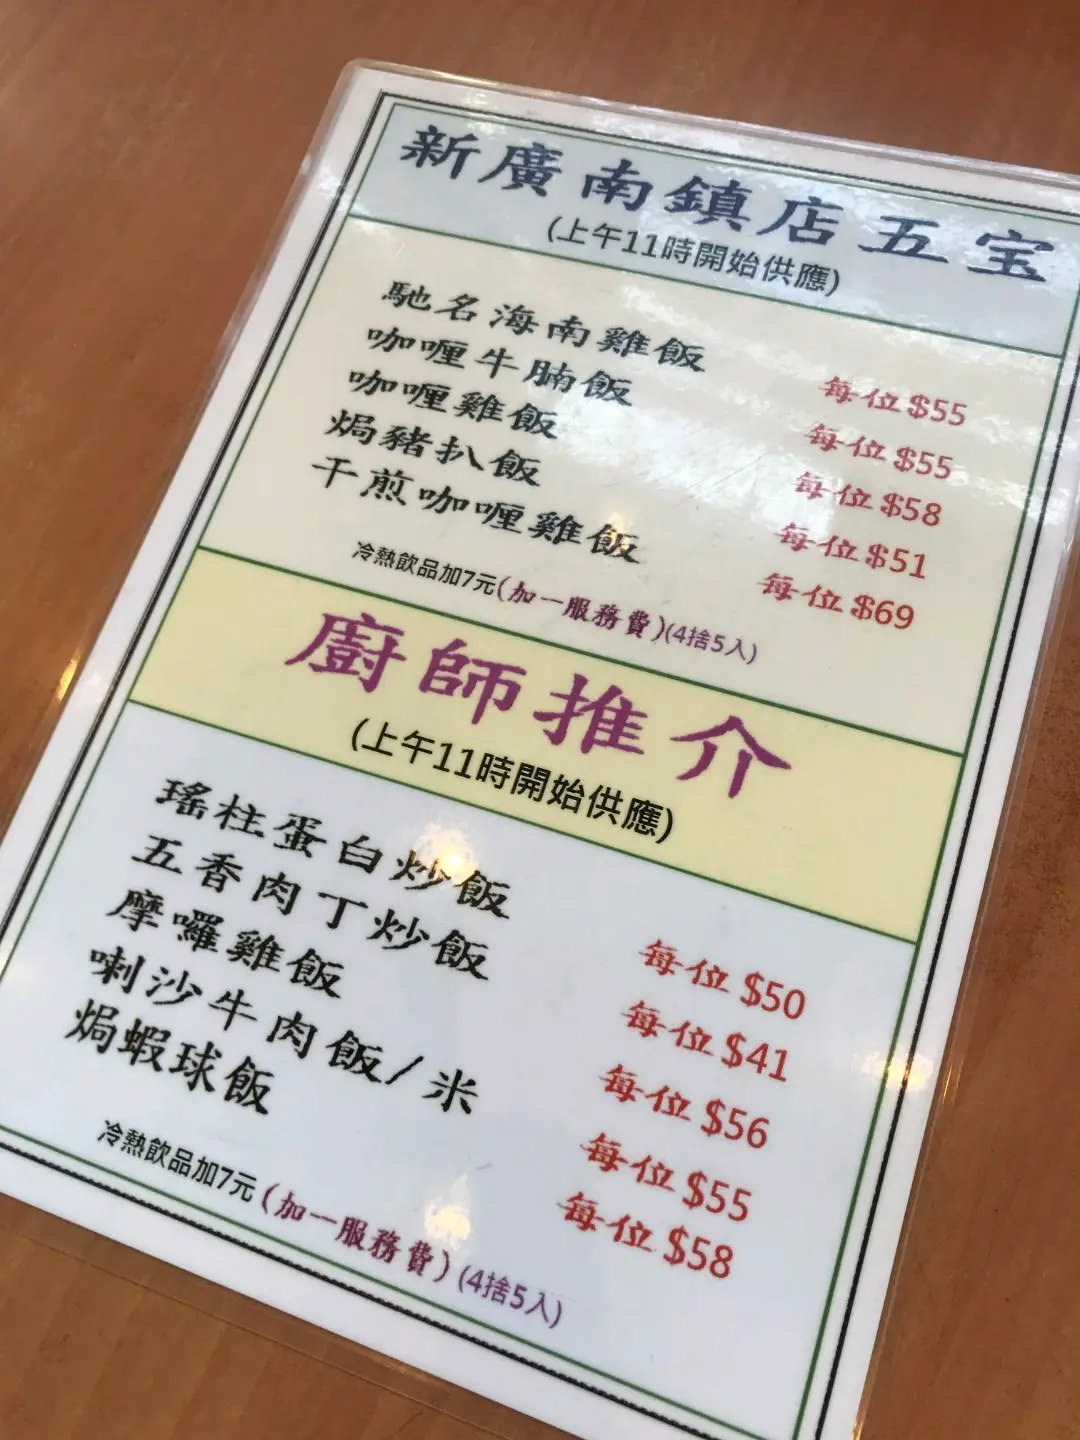 新廣南鎮店五宝
(上午11時開始供應)
馳名海南雞飯 每位 $55
咖喱牛腩飯 每位 $55
咖喱雞飯 每位 $58
焗豬扒飯 每位 $51
干煎咖喱雞飯 每位 $69
冷熱飲品加7元(加一服務費)(4捨5入)
廚師推介
(上午11時開始供應)
瑤柱蛋白炒飯 每位 $50
五香肉丁炒飯 每位 $41
摩囉雞飯 每位 $56
喇沙牛肉飯/米 每位 $55
焗蝦球飯 每位 $58
冷熱飲品加7元(加一服務費)(4捨5入)